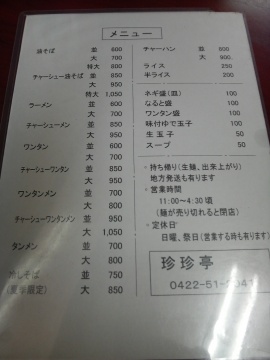 メニュー
油そば 並 600
大 700
特大 800
チャーシュー油そば 並 850
大 950
特大 1,050
ラーメン 並 600
大 700
チャーシューメン 並 850
大 950
ワンタン 並 600
大 700
チャーシューワンタン 並 850
大 950
ワンタンメン 並 700
大 800
チャーシューワンタンメン 並 950
大 1,050
タンメン 並 700
大 800
冷しそば 並 750
(夏季限定) 大 850
チャーハン 並 800
大 900
ライス 250
半ライス 200
ネギ盛(皿) 100
なると盛 100
ワンタン盛 100
味付ゆで玉子 100
生玉子 50
スープ 50
・持ち帰り(生麺、出来上がり)
地方発送も有ります
・営業時間
11:00~4:30頃
(麺が売り切れると閉店)
・定休日
日曜、祭日(営業する時も有ります)
珍珍亭
0422-51-2041